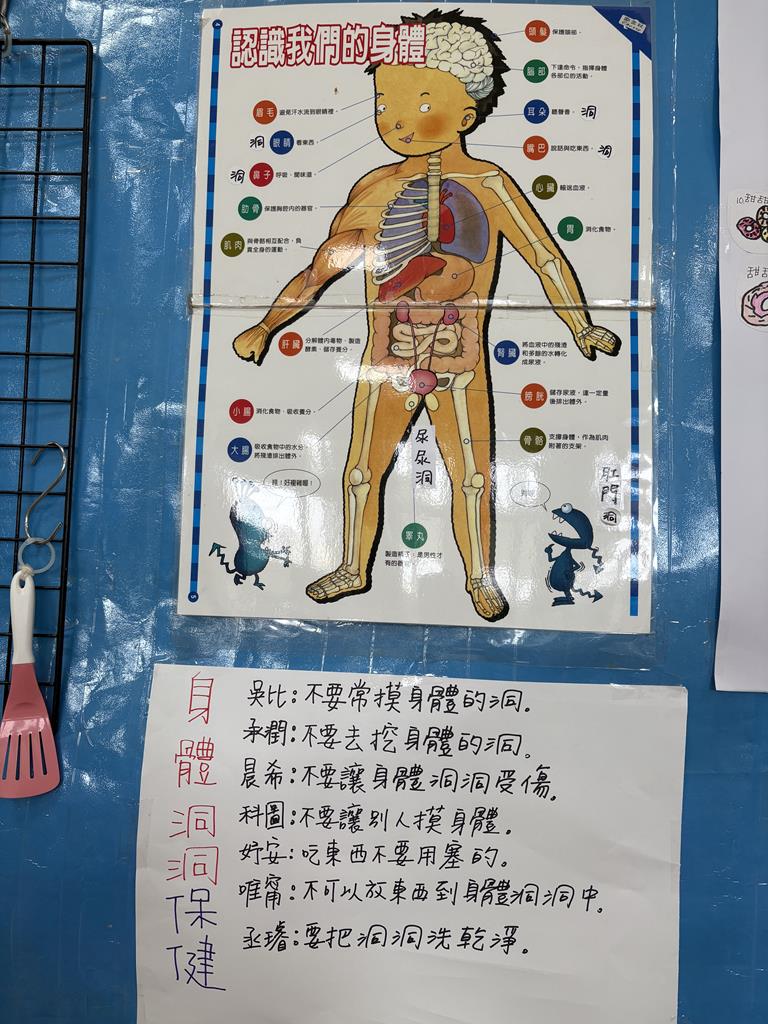 認識我們的身體
頭髮 保護頭部。
腦部 下達命令，指揮身體各部位的活動。
眉毛 避免汗水流到眼睛裡。
耳朵 聽聲音。 洞
洞 眼睛 看東西。
嘴巴 說話與吃東西。 洞
洞 鼻子 呼吸、聞味道。
心臟 輸送血液。
肋骨 保護胸腔內的器官。
胃 消化食物。
肌肉 與骨骼相互配合，負責全身的運動。
肝臟 分解體內毒物、製造酵素、儲存養分。
腎臟 將血液中的殘渣和多餘的水轉化成尿液。
小腸 消化食物、吸收養分。
膀胱 儲存尿液，達一定量後排出體外。
大腸 吸收食物中的水分，將殘渣排出體外。
骨骼 支撐身體，作為肌肉附著的支架。
尿尿洞
肛門洞
哇！好複雜喔！
睪丸
製造精子，是男性才有的器官。
4
5
身體洞洞保健
吳比：不要常摸身體的洞。
承潤：不要去挖身體的洞。
晨希：不要讓身體洞洞受傷。
科圖：不要讓別人摸身體。
妤安：吃東西不要用塞的。
唯甯：不可以放東西到身體洞洞中。
丞璿：要把洞洞洗乾淨。
甜甜
甜甜